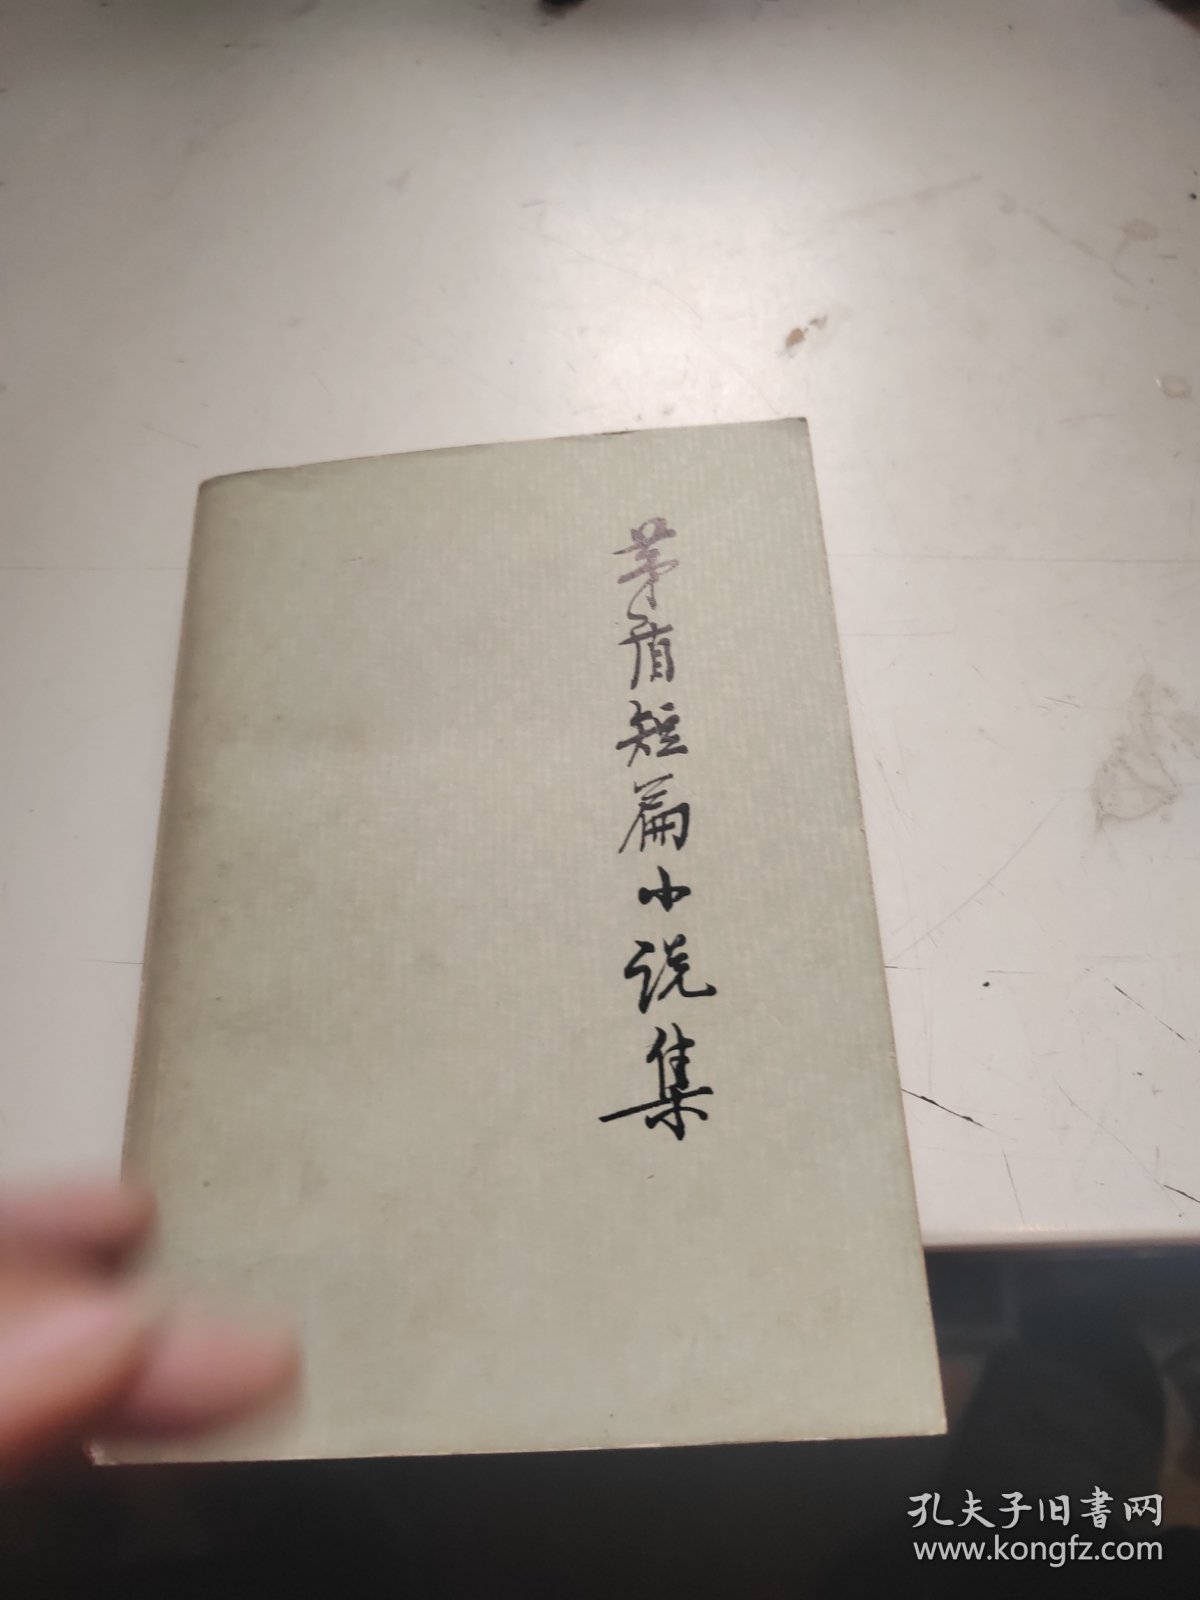 茅盾短篇小说集
孔夫子旧书网
www.kongfz.com